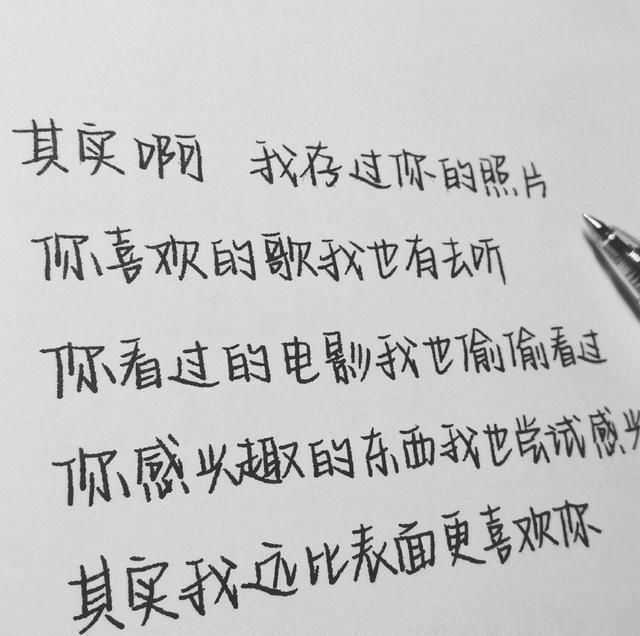 其实啊 我存过你的照片
你喜欢的歌我也有去听
你看过的电影我也偷偷看过
你感兴趣的东西我也尝试感兴
其实我远比表面更喜欢你